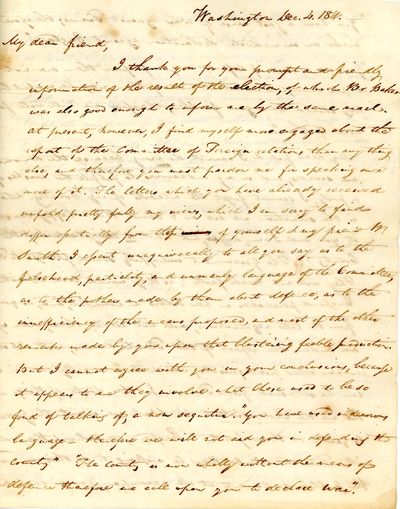 Washington Dec. 4. 1811.
My dear friend,
I thank you for your prompt and friendly
information of the result of the election, of which Mr Baker
was also good enough to inform me by the same mail.
At present, however, I find myself more engaged about the
report of the Committee of Foreign relations than any thing
else, and therefore you must pardon me for speaking once
more of it. The letters which you have already received
unfold pretty fully my views, which I am sorry to find
differ partially from those of yourself & my friend Mr
Smith. I assent unequivocally to all you say as to the
falsehood, partiality, and unmanly language of the Committee,
as to the pother made by them about defence, as to the
inefficiency of the means proposed, and most of the other
remarks made by you upon that blustering feeble production.
But I cannot agree with you in your conclusions, because
it appears to me they involve what these used to be so
fond of talking of, a non sequitur. "You have used
language - therefore we will not aid you in defending the
Country" "The Country is now wholly without the means of
defence therefore we call upon you to declare war".